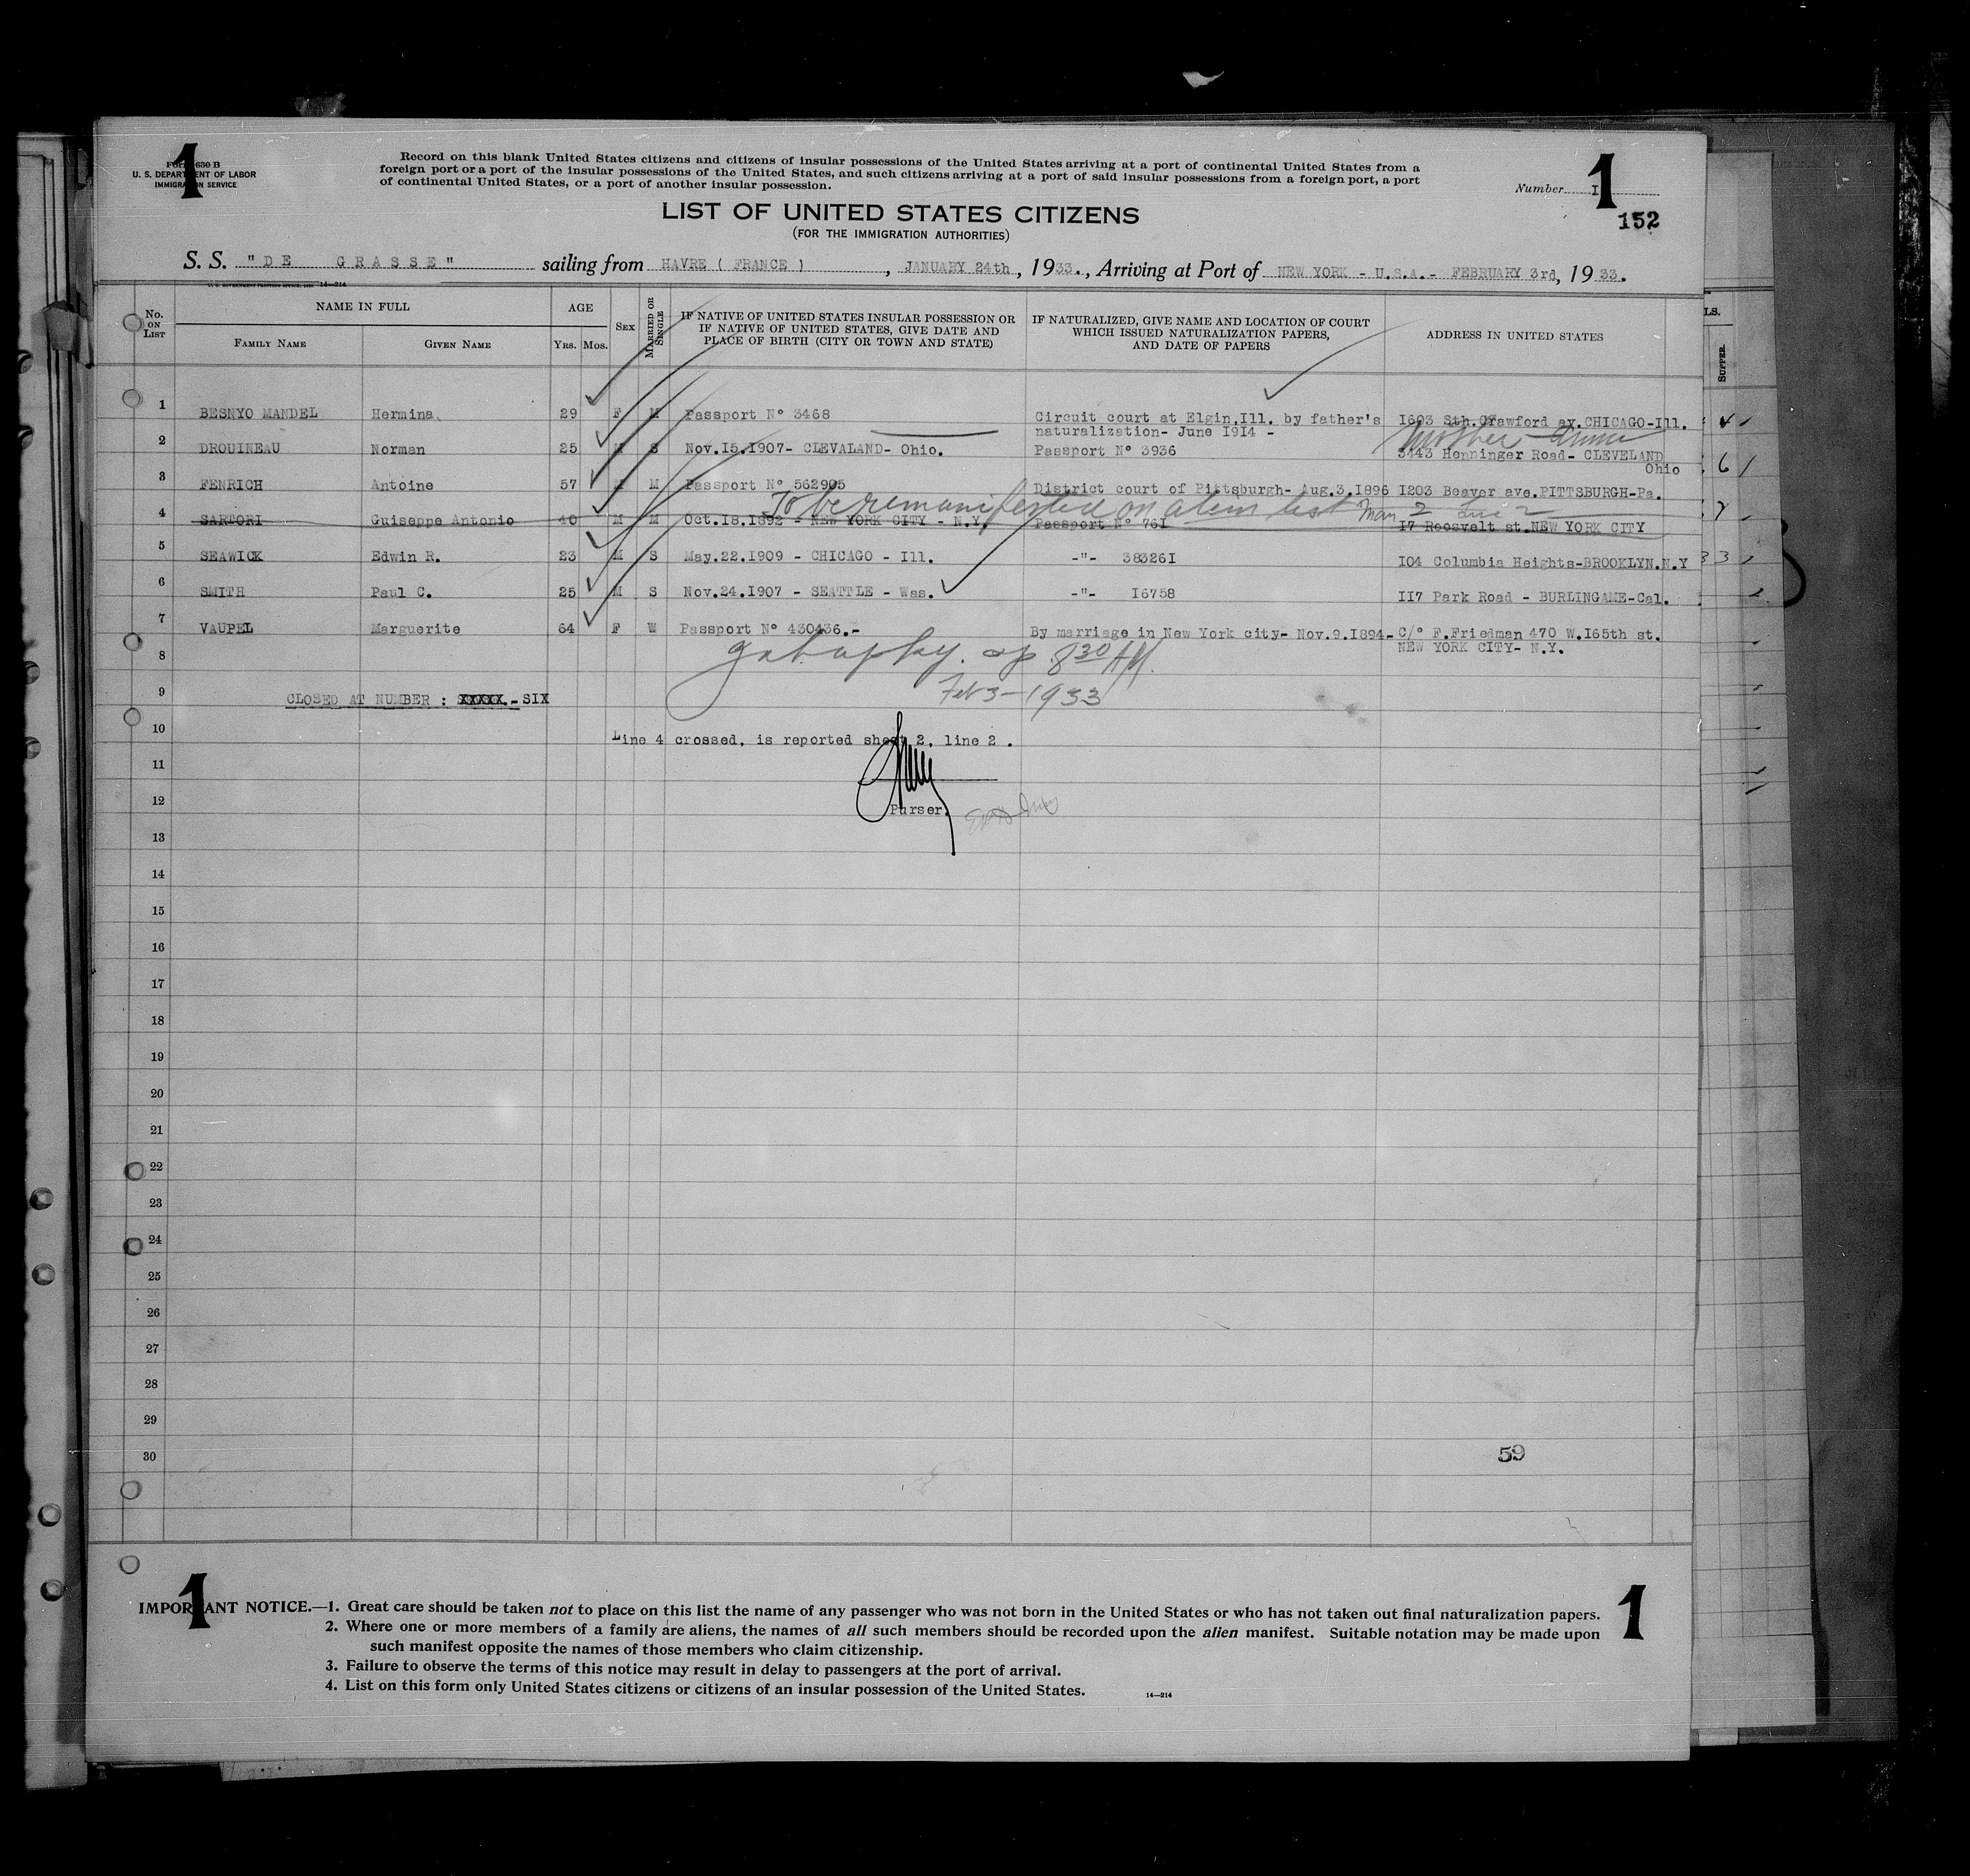 1
1
FORM 630 B
U. S. DEPARTMENT OF LABOR
IMMIGRATION SERVICE
Record on this blank United States citizens and citizens of insular possessions of the United States arriving at a port of continental United States from a
foreign port or a port of the insular possessions of the United States, and such citizens arriving at a port of said insular possessions from a foreign port, a port
of continental United States, or a port of another insular possession.
Number I
152
LIST OF UNITED STATES CITIZENS
(FOR THE IMMIGRATION AUTHORITIES)
S. S. "DE GRASSE" sailing from HAVRE ( FRANCE ) , JANUARY 24th, 1933., Arriving at Port of NEW YORK - U.S.A.- FEBRUARY 3rd, 1933.
14—214
No. ON LIST
NAME IN FULL
FAMILY NAME
GIVEN NAME
AGE
YRS. MOS.
SEX
MARRIED OR SINGLE
IF NATIVE OF UNITED STATES INSULAR POSSESSION OR
IF NATIVE OF UNITED STATES, GIVE DATE AND
PLACE OF BIRTH (CITY OR TOWN AND STATE)
IF NATURALIZED, GIVE NAME AND LOCATION OF COURT
WHICH ISSUED NATURALIZATION PAPERS,
AND DATE OF PAPERS
ADDRESS IN UNITED STATES
LS.
SUPPER.
1 BESNYO MANDEL Hermina 29 F M Passport N° 3468 Circuit court at Elgin.Ill. by father's naturalization- June I9I4 - I603 Sth.Crawford av.CHICAGO-Ill.
2 DROUINEAU Norman 25 M S Nov.I5.I907- CLEVALAND- Ohio. Passport N° 3936 3443 Henninger Road- CLEVELAND Ohio
3 FENRICH Antoine 57 M M Passport N° 562905 District court of Pittsburgh- Aug.3.I896 I203 Beaver ave.PITTSBURGH-Pa.
To be remanifested on alien list Man 2 Line 2
4 SARTORI Guiseppe Antonio 40 M M Oct.I8.I892 - NEW YORK CITY - N.Y. Passport N° 76I I7 Roosvelt st.NEW YORK CITY
5 SEAWICK Edwin R. 23 M S May.22.I909 - CHICAGO - Ill. -"- 38326I I04 Columbia Heights-BROOKLYN.N.Y
6 SMITH Paul C. 25 M S Nov.24.I907 - SEATTLE - Was. -"- I6758 II7 Park Road - BURLINGAME-Cal.
7 VAUPEL Marguerite 64 F W Passport N° 430436.- By marriage in New York city- Nov.9.I894- C/° F.Friedman 470 W.I65th st.
NEW YORK CITY- N.Y.
8
8 30 AM.
Feb 3-1933
9 CLOSED AT NUMBER : XXXXX.- SIX
10 Line 4 crossed, is reported sheet 2, line 2 .
11
12 Purser.
13
14
15
16
17
18
19
20
21
22
23
24
25
26
27
28
29
30
59
1
1
IMPORTANT NOTICE.—1. Great care should be taken not to place on this list the name of any passenger who was not born in the United States or who has not taken out final naturalization papers.
2. Where one or more members of a family are aliens, the names of all such members should be recorded upon the alien manifest. Suitable notation may be made upon
such manifest opposite the names of those members who claim citizenship.
3. Failure to observe the terms of this notice may result in delay to passengers at the port of arrival.
4. List on this form only United States citizens or citizens of an insular possession of the United States.
14—214